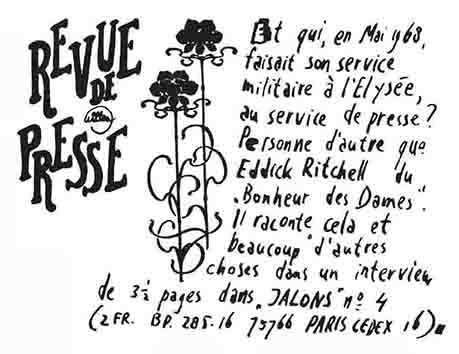 REVUE
DE
Willem
PRESSE
Et qui, en Mai 1968,
faisait son service
militaire à l'Elysée,
au service de presse?
Personne d'autre que
Eddick Ritchell du
„Bonheur des Dames".
Il raconte cela et
beaucoup d'autres
choses dans un interview
de 3½ pages dans „JALONS" nº 4
(2 FR. BP. 285.16 75766 PARIS CEDEX 16)